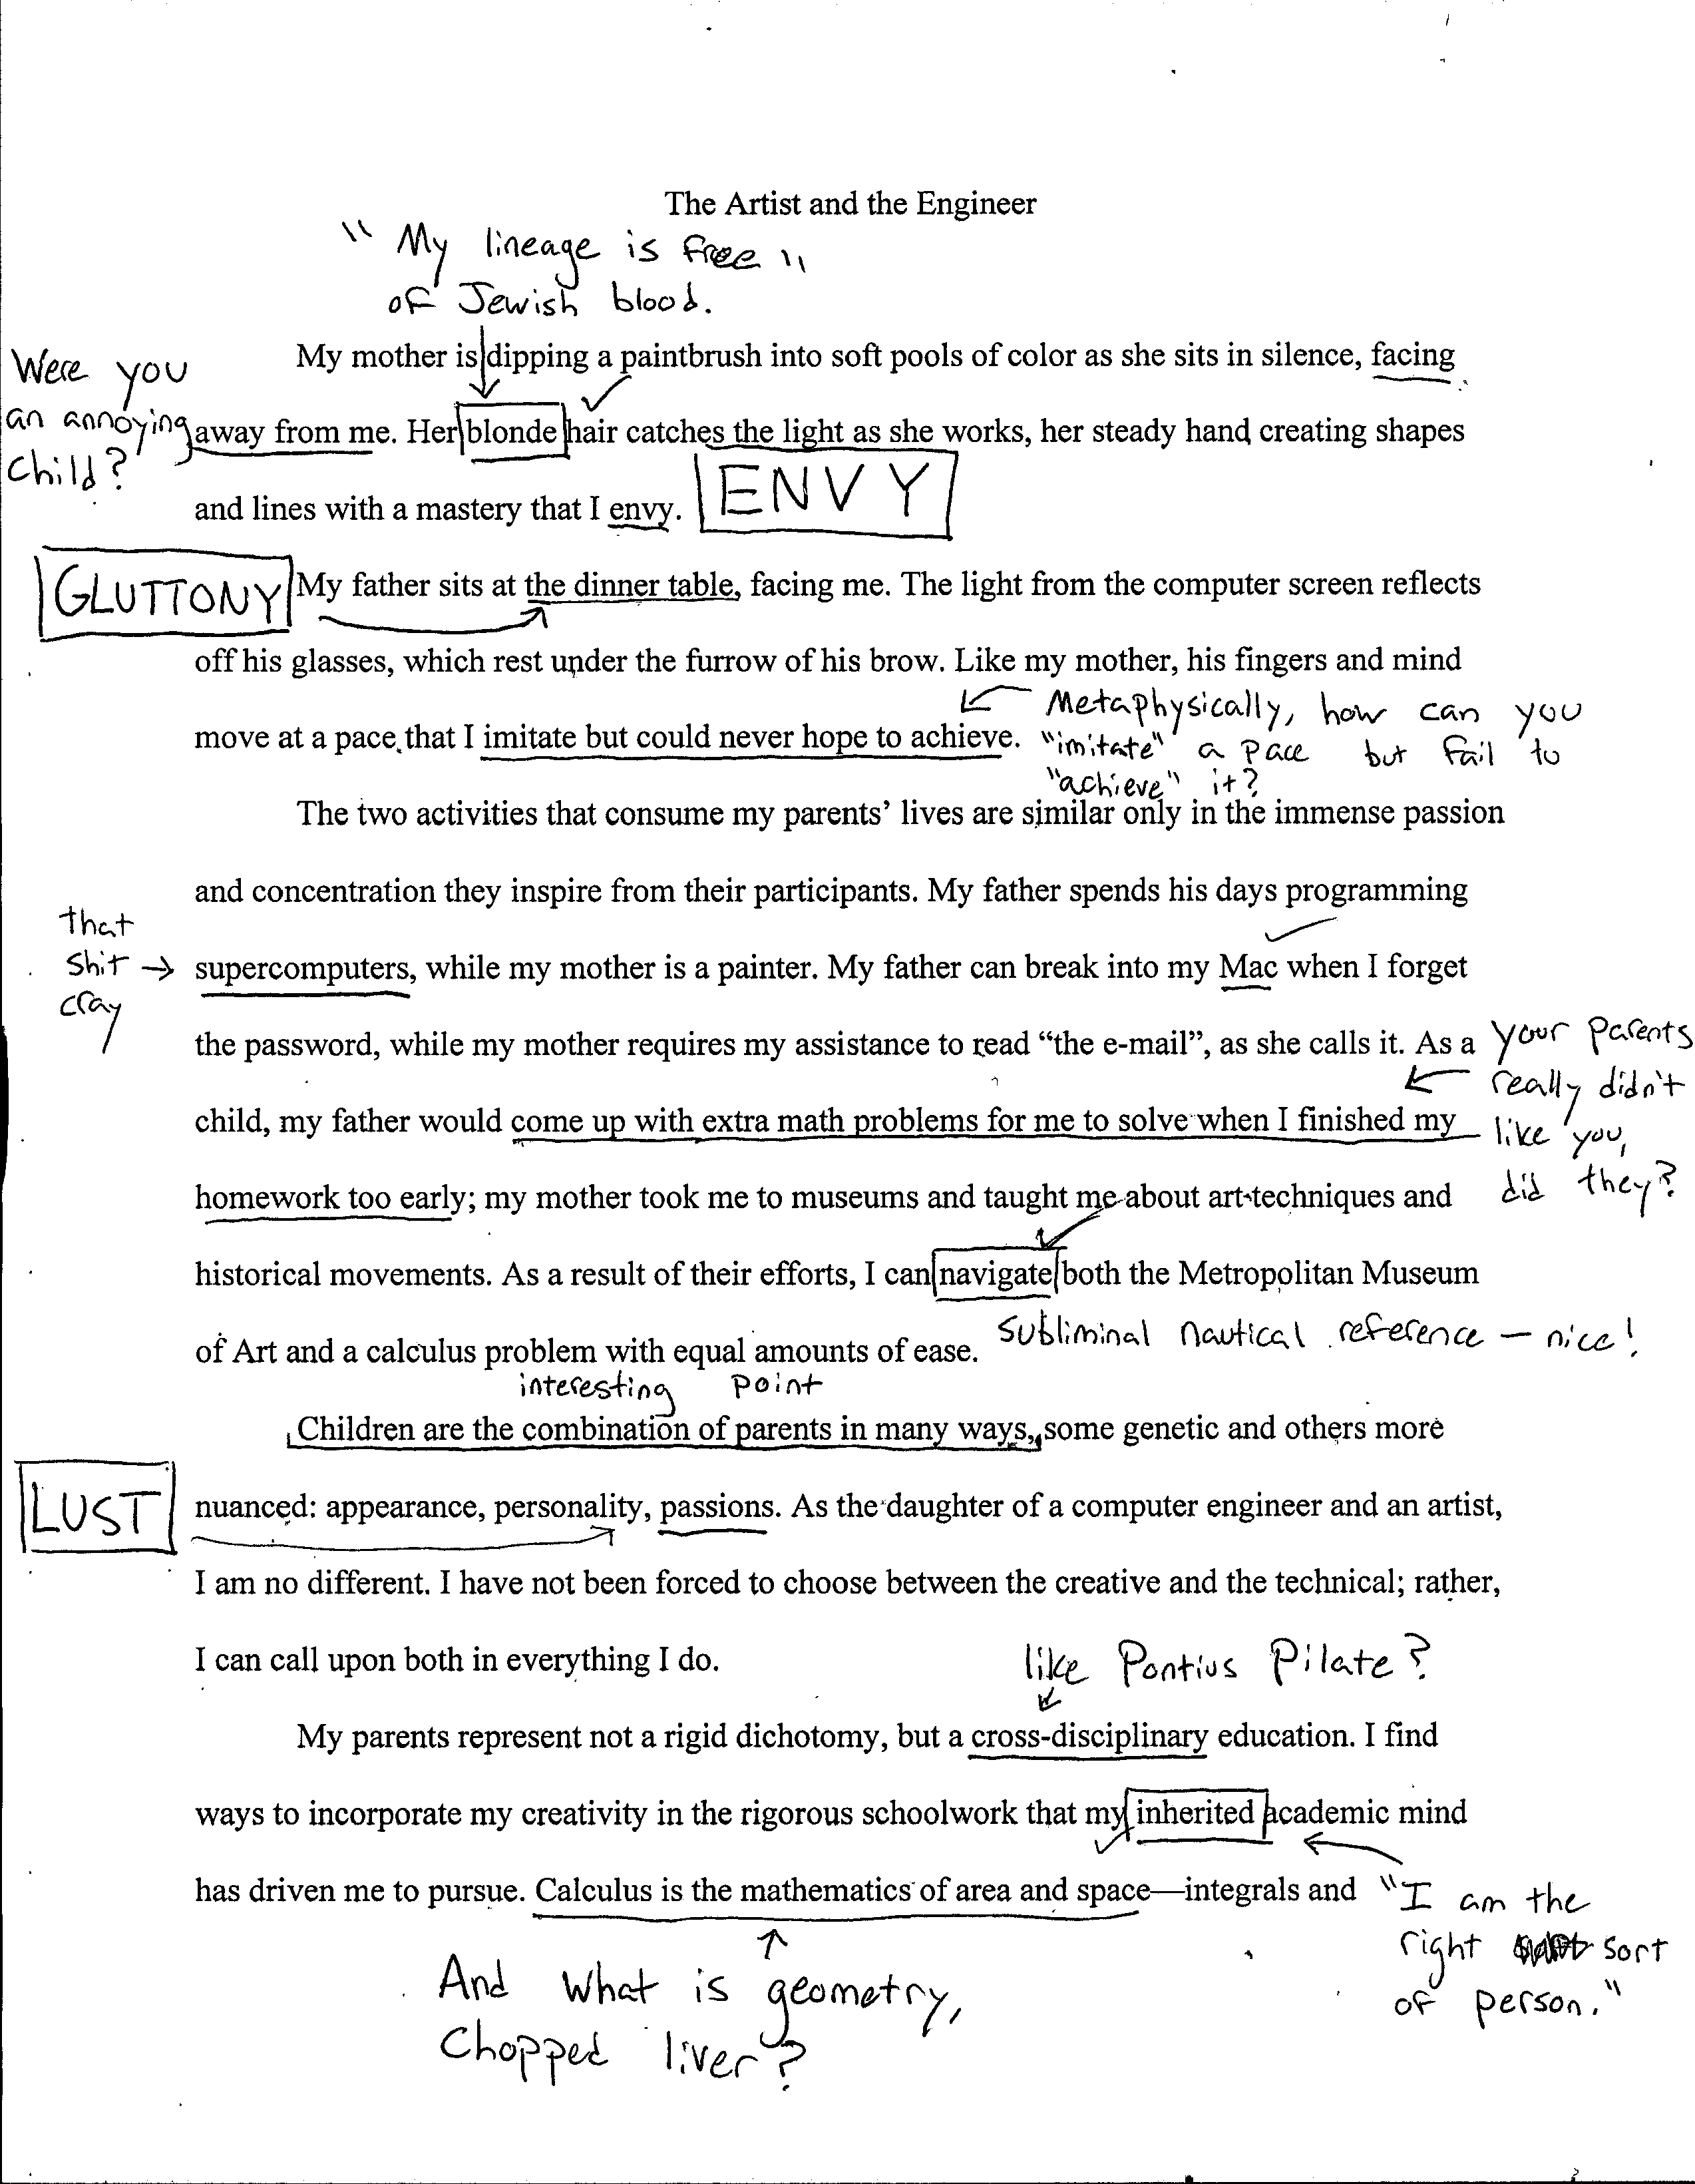 The Artist and the Engineer
"My lineage is free"
of Jewish blood.
My mother is dipping a paintbrush into soft pools of color as she sits in silence, facing
Were you
an annoying
child?
away from me. Her blonde hair catches the light as she works, her steady hand creating shapes
and lines with a mastery that I envy.
ENVY
GLUTTONY
My father sits at the dinner table, facing me. The light from the computer screen reflects
off his glasses, which rest under the furrow of his brow. Like my mother, his fingers and mind
move at a pace that I imitate but could never hope to achieve.
Metaphysically, how can you
"imitate" a pace but fail to
"achieve" it?
The two activities that consume my parents' lives are similar only in the immense passion
and concentration they inspire from their participants. My father spends his days programming
that
shit →
cray
supercomputers, while my mother is a painter. My father can break into my Mac when I forget
the password, while my mother requires my assistance to read “the e-mail”, as she calls it. As a
child, my father would come up with extra math problems for me to solve when I finished my
your parents
really didn't
like you,
did they?
homework too early; my mother took me to museums and taught me about art techniques and
historical movements. As a result of their efforts, I can navigate both the Metropolitan Museum
of Art and a calculus problem with equal amounts of ease.
subliminal nautical reference — nice!
interesting point
Children are the combination of parents in many ways, some genetic and others more
LUST
nuanced: appearance, personality, passions. As the daughter of a computer engineer and an artist,
I am no different. I have not been forced to choose between the creative and the technical; rather,
I can call upon both in everything I do.
like Pontius Pilate?
My parents represent not a rigid dichotomy, but a cross-disciplinary education. I find
ways to incorporate my creativity in the rigorous schoolwork that my inherited academic mind
has driven me to pursue. Calculus is the mathematics of area and space—integrals and
"I am the
right sort
of person."
And what is geometry,
chopped liver?